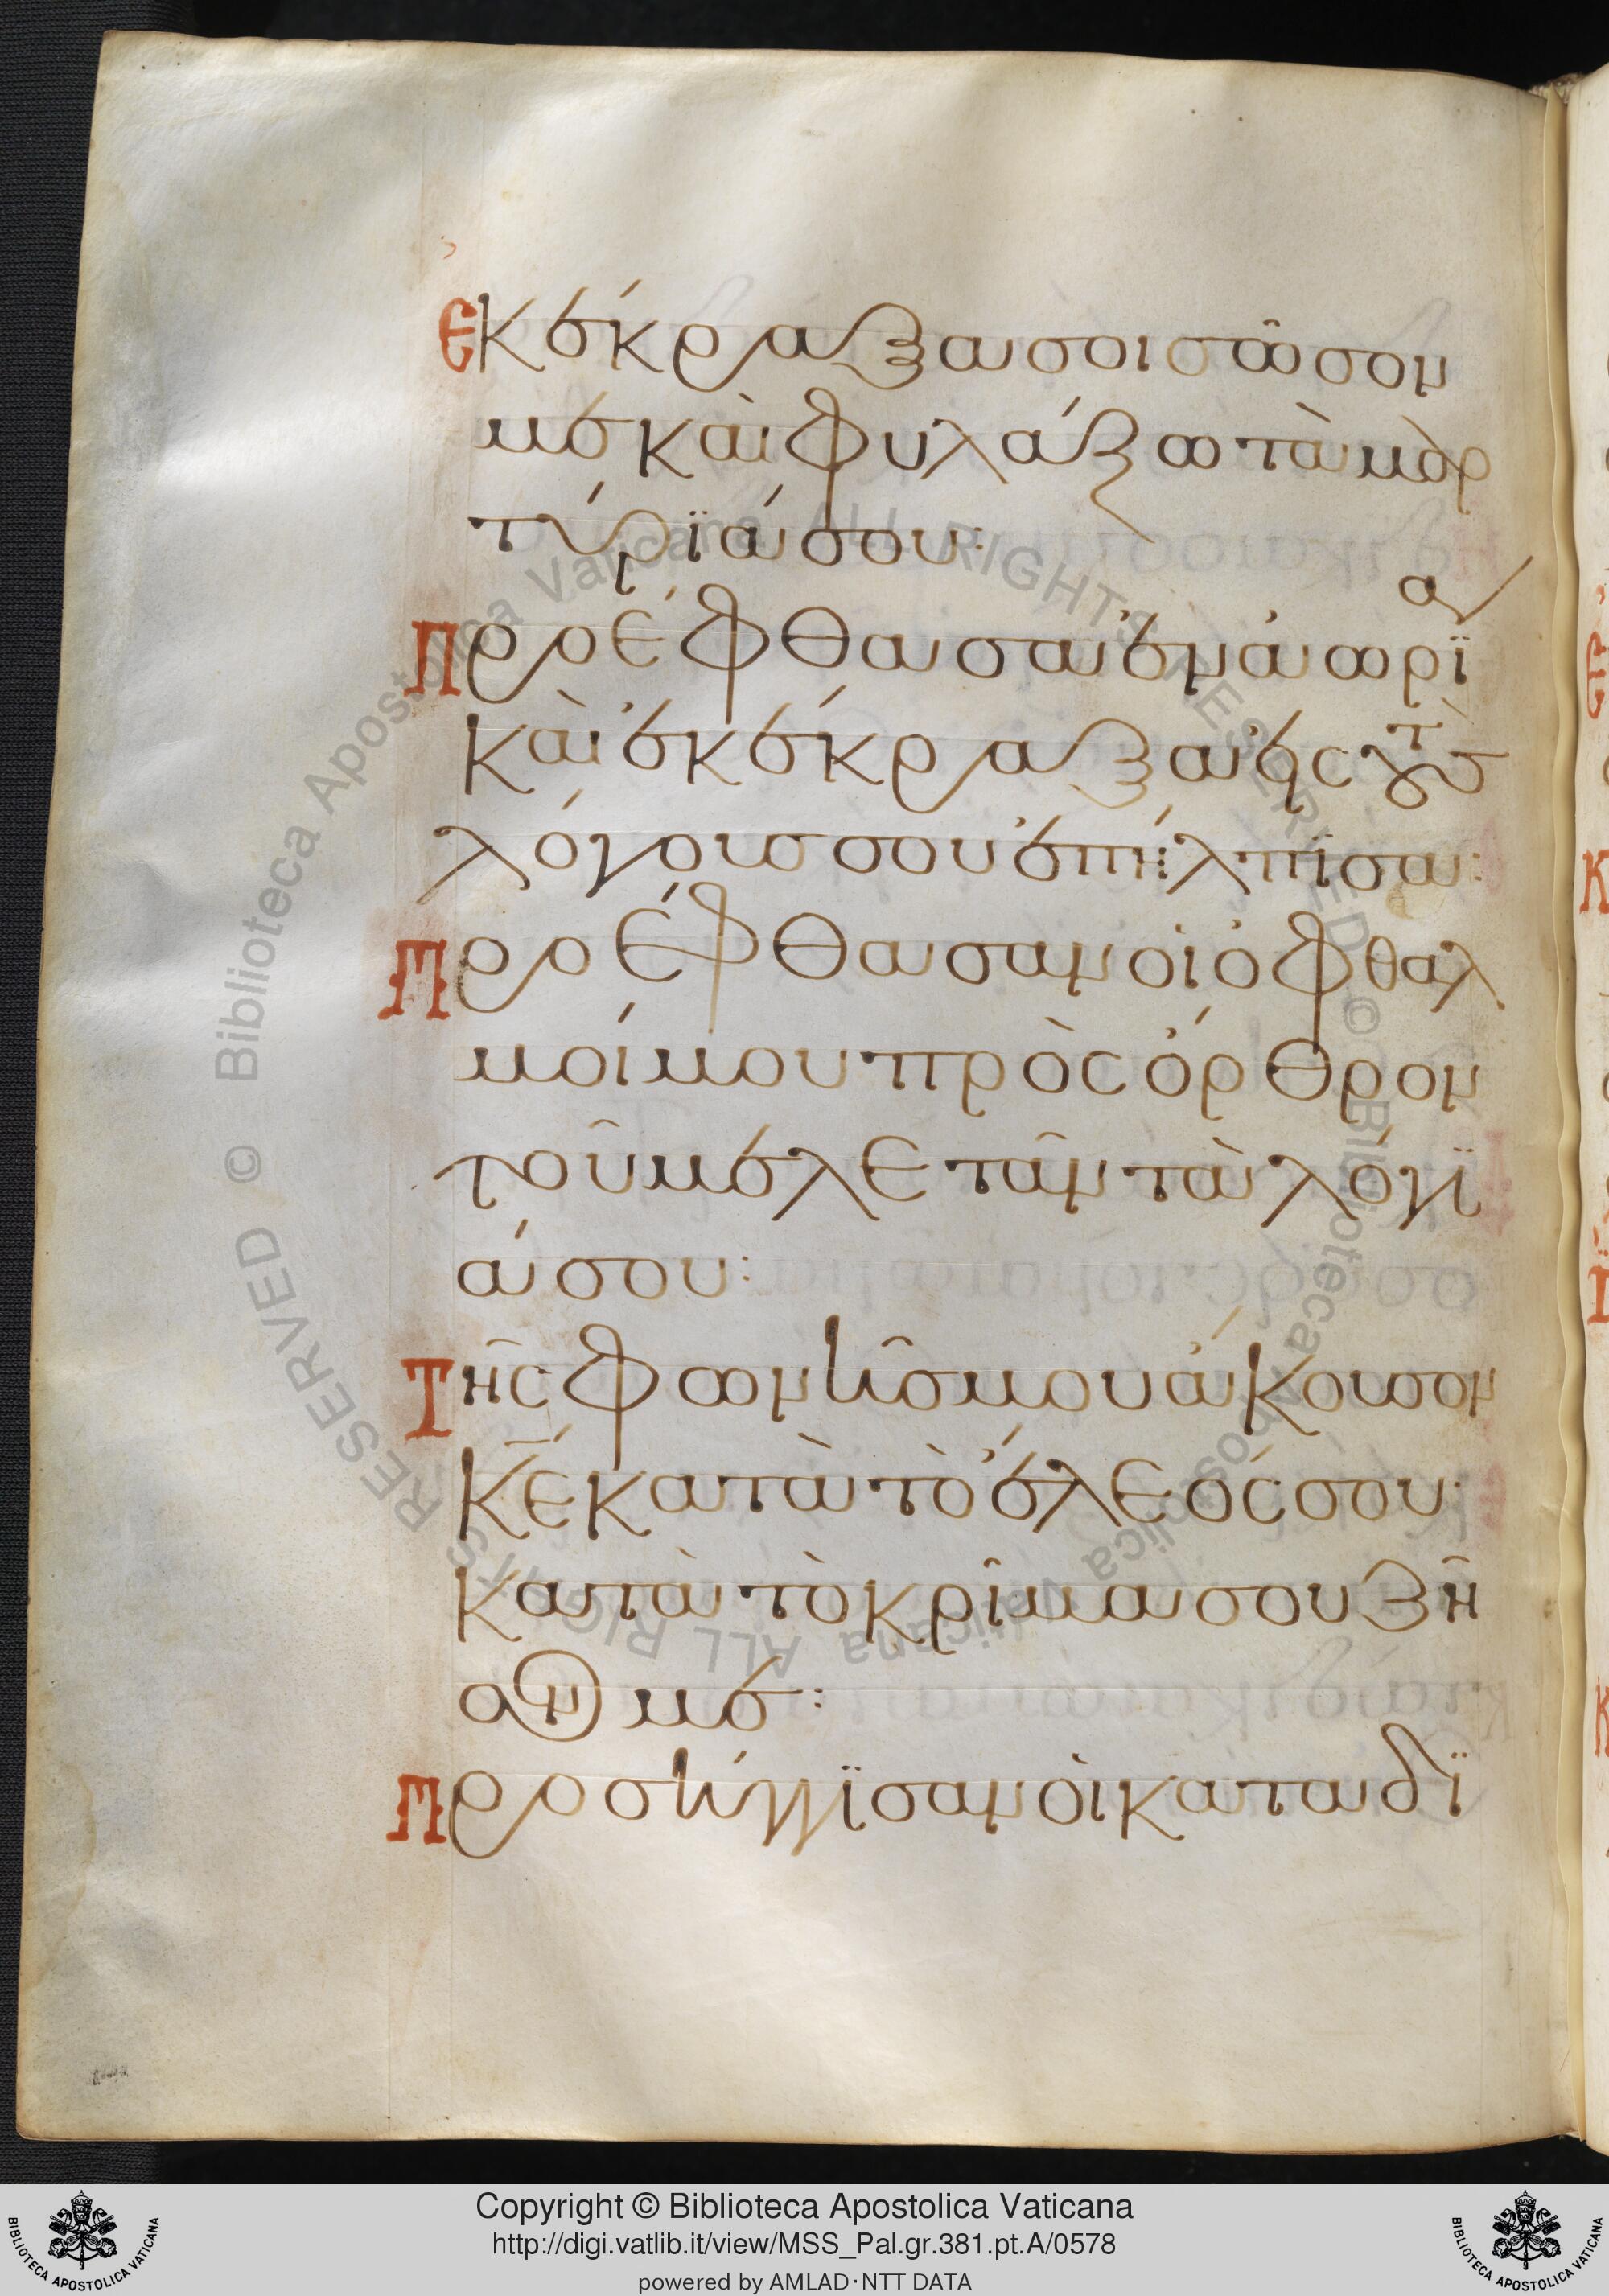 Ἐκέκραξα σοι σῶσον
με καὶ φυλάξω τὰ μαρ
τύριά σου:
Προέφθασα ἐν ἀωρίᾳ
καὶ ἐκέκραξα εἰς τοὺς
λόγους σου ἐπήλπισα:
Προέφθασαν οἱ ὀφθαλ
μοί μου πρὸς ὄρθρον
τοῦ μελετᾶν τὰ λόγι
ά σου:
Τῆς φωνῆς μου ἄκουσον
κ̅ε̅ κατὰ τὸ ἔλεός σου:
κατὰ τὸ κρῖμα σου ζῆ
σόν με:
Προσήγγισαν οἱ καταδι
© Biblioteca Apostolica Vaticana ALL RIGHTS RESERVED © Biblioteca Apostolica Vaticana ALL RIGHTS RESERVED
Copyright © Biblioteca Apostolica Vaticana
http://digi.vatlib.it/view/MSS_Pal.gr.381.pt.A/0578
powered by AMLAD·NTT DATA
BIBLIOTECA APOSTOLICA VATICANA
BIBLIOTECA APOSTOLICA VATICANA